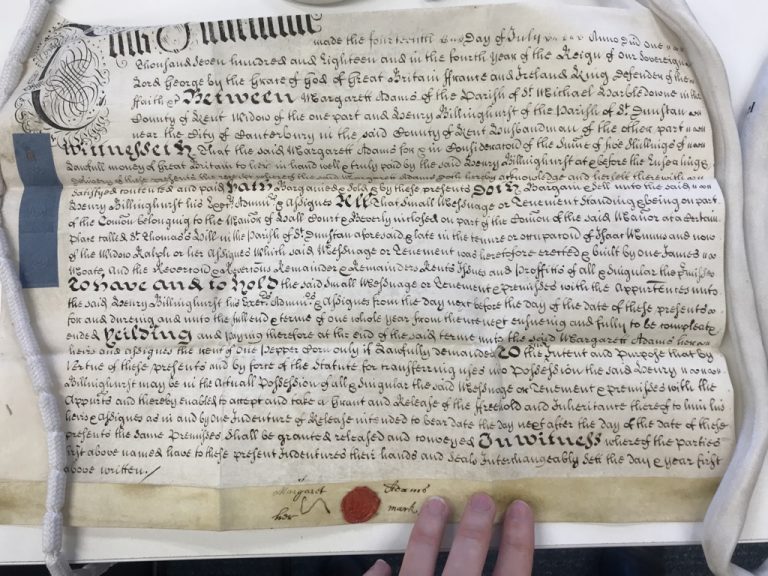 This Indenture made the fourteenth Day of July Anno Dni one
Thousand Seven hundred and Eighteen and in the fourth Year of the Reign of our Sovereigne
Lord George by the Grace of God of Great Brittain ffrance and Ireland King Defender of the
ffaith & Between Margarett Adams of the Parish of St Michael Harbledowne in the
County of Kent Widow of the one part and Henry Billinghurst of the Parish of St Dunstan
near the City of Canterbury in the said County of Kent Husbandman of the other part
Witnesseth That the said Margarett Adams for & in Consideration of the Summe of five Shillings of
Lawfull money of Great Britain to her in hand well & truly paid by the said Henry Billinghurst at & before the Ensealing &
Delivery of these presents the receipt whereof the said Margarett Adams doth hereby acknowledge and herself therewith
Satisfyed contented and paid Hath Bargained & Sold & by these presents Doth Bargain & Sell unto the said
Henry Billinghurst his & assignes All That Small Messuage or Tenement Standing & being on part
of the Comon belonging to the Manor of Hall Court & Beverly inclosed on part of the Comon of the said Manor at a Certain
place called St Thomas's Hill in the Parish of St Dunstan aforesaid & late in the tenure or occupation of Isaac and now
of the Widow Ralph or her Assignes Which said Messuage or Tenement was heretofore erected & built by one James
Moate, and the Revertion & Revertions Remainder & Remainders Rents Issues and proffitts of all & Singular the Premisses
To have and to hold the said Small Messuage or Tenement & premisses with the Appurtences unto
the said Henry Billinghurst his & assignes from the day next before the day of the date of these presents
for and dureing and unto the full end & terme of one whole year from thence next ensueing and fully to be compleat &
ended Yeilding and paying therefore at the end of the said terme unto the said Margarett Adams her
heirs and assignes the rent of one Pepper Corn only if Lawfully demanded To the Intent and Purpose that by
Vertue of these presents and by force of the Statute for transferring uses into Possession the said Henry
Billinghurst may be in the Actuall Possession of all & Singular the said Messuage or Tenement & premisses with the
Appurts and thereby enabled to accept and take a Grant and Release of the ffreehold and Inheritance thereof to him his
heirs & assignes as in and by one Indenture of Release intended to bear date the day next after the day of the date of these
presents the Same Premisses Shall be granted released and conveyed In witness whereof the parties
first above named have to these present Indentures their hands and Seals Interchangeably sett the day & year first
above written./
Margaret Adams
her mark